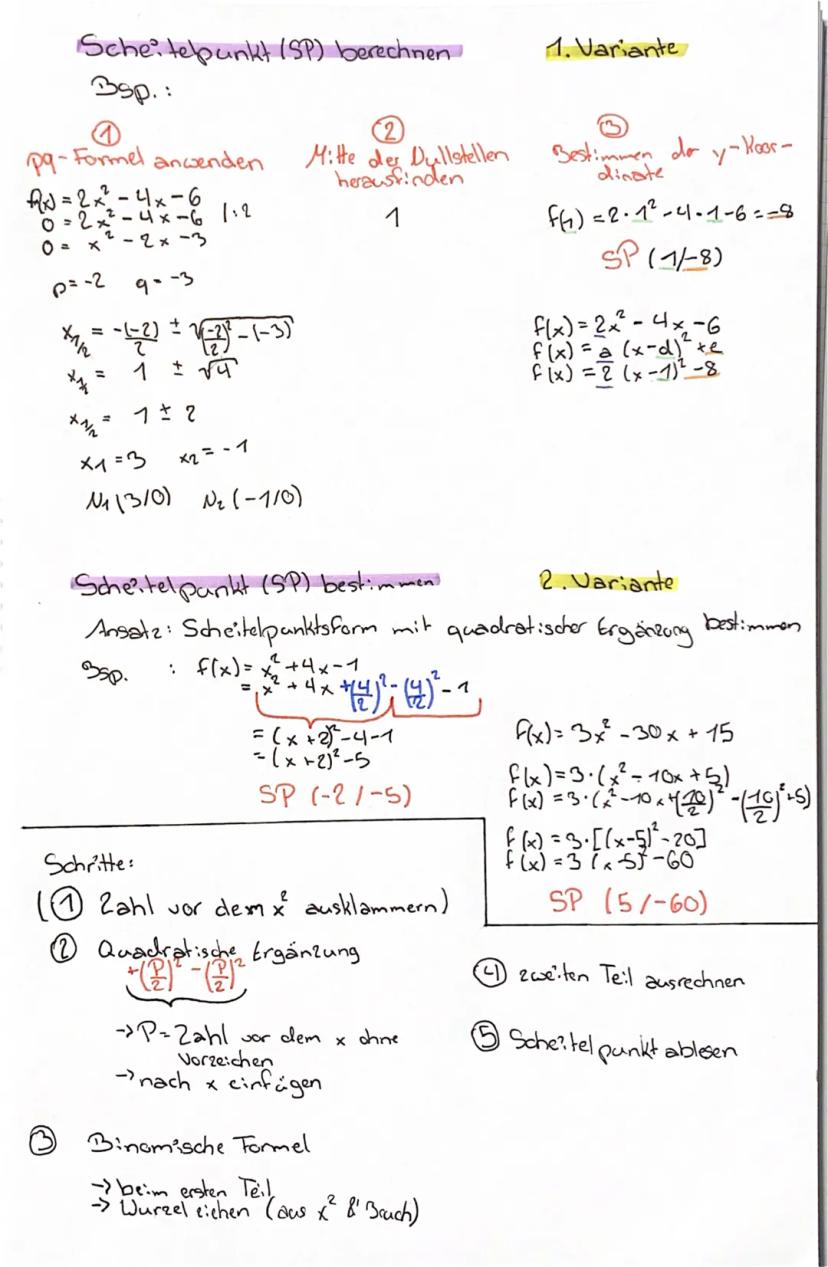 Scheitelpunkt (SP) berechnen
1. Variante
Bsp.:
①
pq-Formel anwenden
f(x) = 2x² - 4x - 6
0 = 2x² - 4x - 6 |:2
0 = x² - 2x - 3
p = -2 q = -3
x1/2 = -(-2)/2 ± √((-2/2)² - (-3))
x1/2 = 1 ± √4
x1/2 = 1 ± 2
x1 = 3 x2 = -1
N1 (3/0) N2 (-1/0)
②
Mitte der Nullstellen
herausfinden
1
③
Bestimmen der y-Koor-
dinate
f(1) = 2 · 1² - 4 · 1 - 6 = -8
SP (1/-8)
f(x) = 2x² - 4x - 6
f(x) = a (x-d)² + e
f(x) = 2 (x-1)² - 8
Scheitelpunkt (SP) bestimmen
2. Variante
Ansatz: Scheitelpunktsform mit quadratischer Ergänzung bestimmen
Bsp. : f(x) = x² + 4x - 1
= x² + 4x + (4/2)² - (4/2)² - 1
= (x+2)² - 4 - 1
= (x+2)² - 5
SP (-2/-5)
f(x) = 3x² - 30x + 15
f(x) = 3 · (x² - 10x + 5)
f(x) = 3 · (x² - 10x + (10/2)² - (10/2)² + 5)
f(x) = 3 · [(x-5)² - 20]
f(x) = 3 (x-5)² - 60
SP (5/-60)
Schritte:
(① Zahl vor dem x² ausklammern)
② Quadratische Ergänzung
+(P/2)² - (P/2)²
→ P = Zahl vor dem x ohne
Vorzeichen
→ nach x einfügen
③ Binomische Formel
→ beim ersten Teil
→ Wurzel ziehen (aus x² & Bruch)
④ zweiten Teil ausrechnen
⑤ Scheitelpunkt ablesen